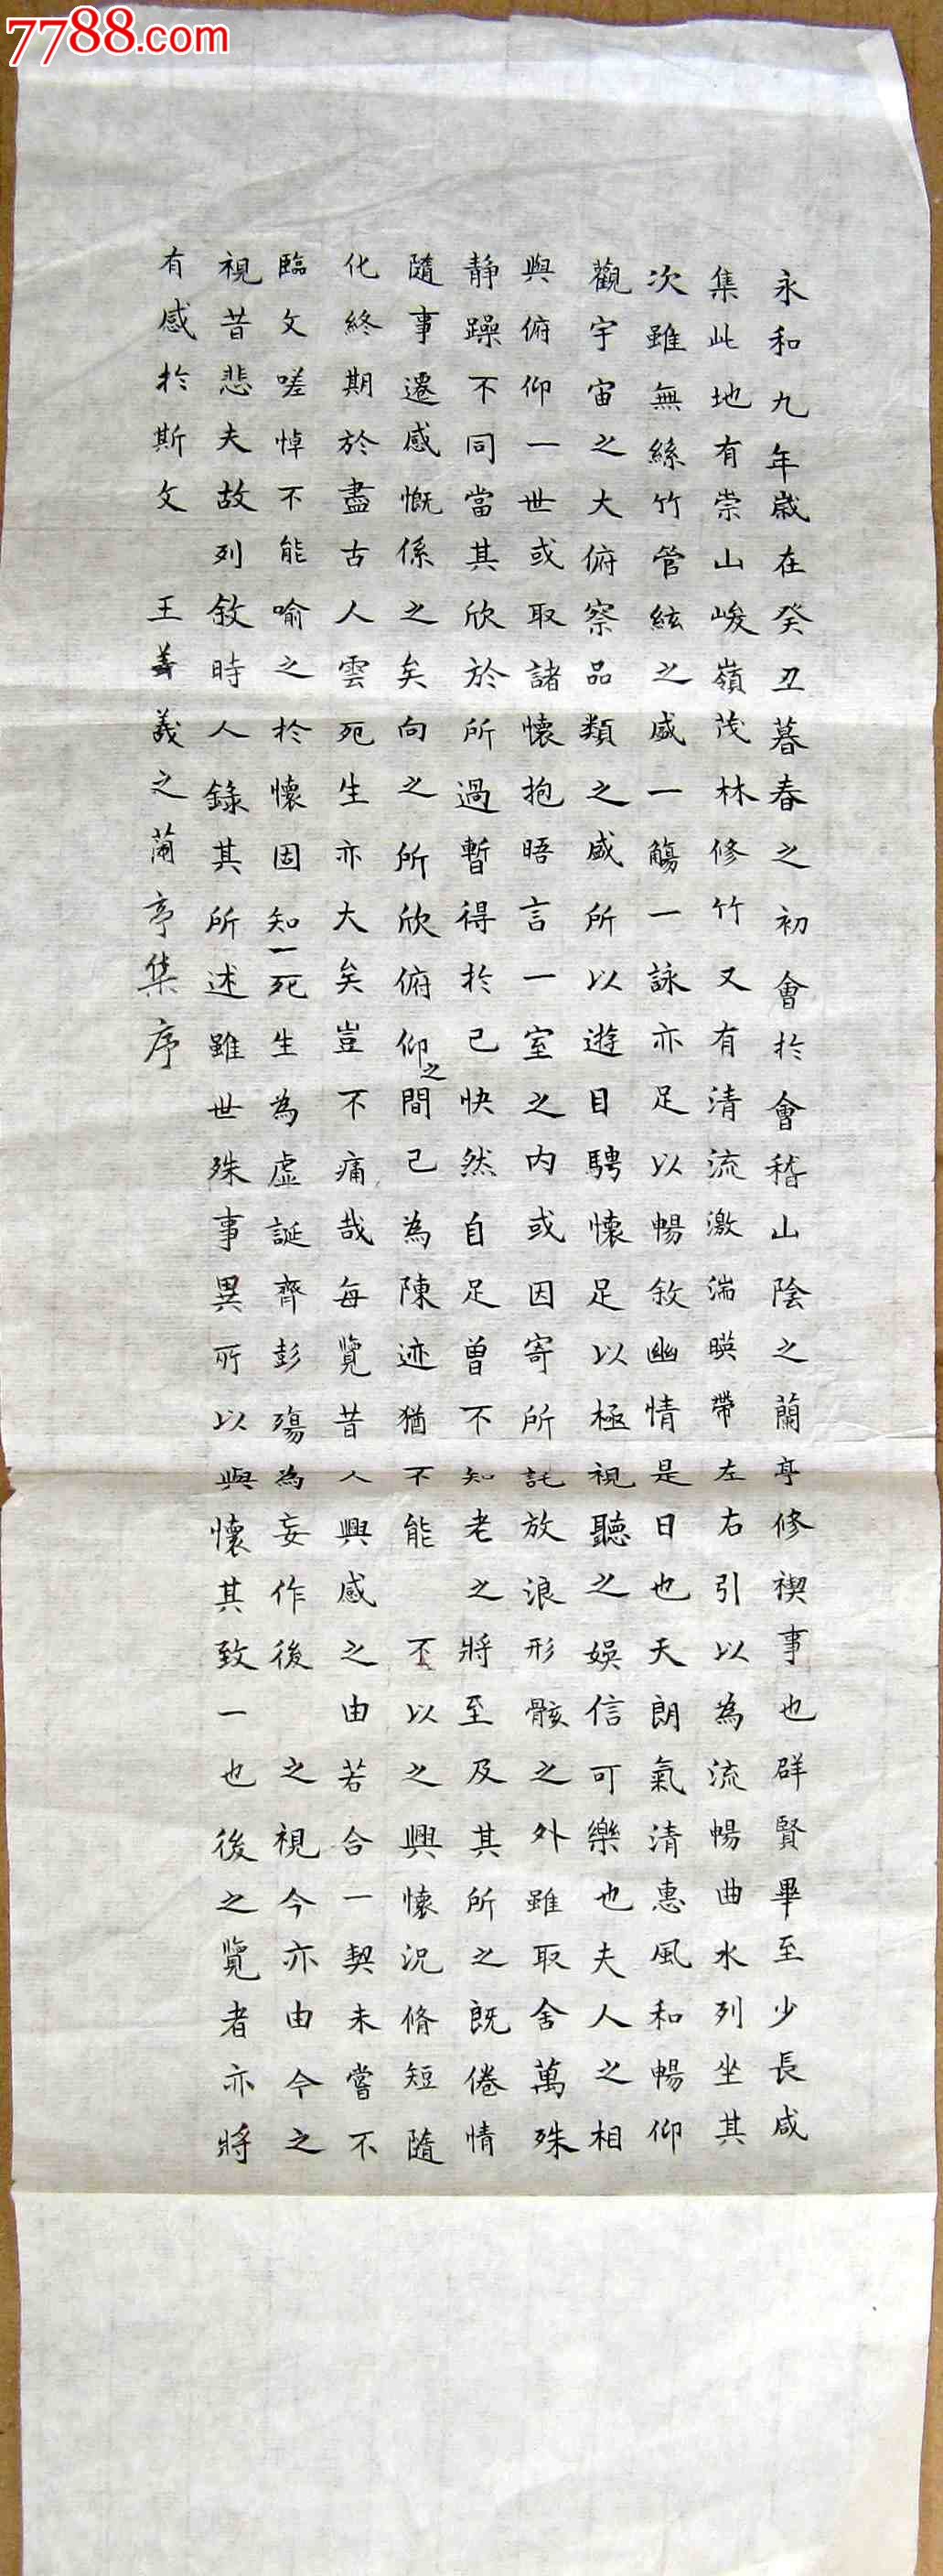 7788.com
永和九年歲在癸丑暮春之初會於會稽山陰之蘭亭修禊事也群賢畢至少長咸
集此地有崇山峻嶺茂林修竹又有清流激湍暎帶左右引以為流暢曲水列坐其
次雖無絲竹管絃之盛一觴一詠亦足以暢敘幽情是日也天朗氣清惠風和暢仰
觀宇宙之大俯察品類之盛所以遊目騁懷足以極視聽之娛信可樂也夫人之相
與俯仰一世或取諸懷抱晤言一室之內或因寄所託放浪形骸之外雖取舍萬殊
靜躁不同當其欣於所過暫得於己快然自足曾不知老之將至及其所之既倦情
隨事遷感慨係之矣向之所欣俯仰之間已為陳迹猶不能不以之興懷況脩短隨
化終期於盡古人雲死生亦大矣豈不痛哉每覽昔人興感之由若合一契未嘗不
臨文嗟悼不能喻之於懷固知一死生為虛誕齊彭殤為妄作後之視今亦由今之
視昔悲夫故列敘時人錄其所述雖世殊事異所以興懷其致一也後之覽者亦將
有感於斯文 王羲義之蘭亭集序